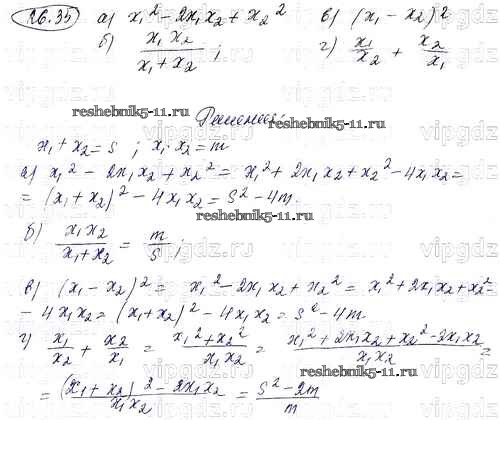 26.35 а) x₁² - 2x₁x₂ + x₂² в) (x₁ - x₂)²
б) x₁x₂ / (x₁ + x₂); г) x₁/x₂ + x₂/x₁
reshebnik5-11.ru reshebnik5-11.ru
Решение:
x₁ + x₂ = s ; x₁ x₂ = m
а) x₁² - 2x₁x₂ + x₂² = x₁² + 2x₁x₂ + x₂² - 4x₁x₂ =
= (x₁ + x₂)² - 4x₁x₂ = s² - 4m.
reshebnik5-11.ru
б) x₁x₂ / (x₁ + x₂) = m/s;
в) (x₁ - x₂)² = x₁² - 2x₁x₂ + x₂² = x₁² + 2x₁x₂ + x₂² =
- 4x₁x₂ = (x₁ + x₂)² - 4x₁x₂ = s² - 4m
г) x₁/x₂ + x₂/x₁ = (x₁² + x₂²) / x₁x₂ = (x₁² + 2x₁x₂ + x₂² - 2x₁x₂) / x₁x₂ =
reshebnik5-11.ru
= ((x₁ + x₂)² - 2x₁x₂) / x₁x₂ = (s² - 2m) / m
vipgdz.ru